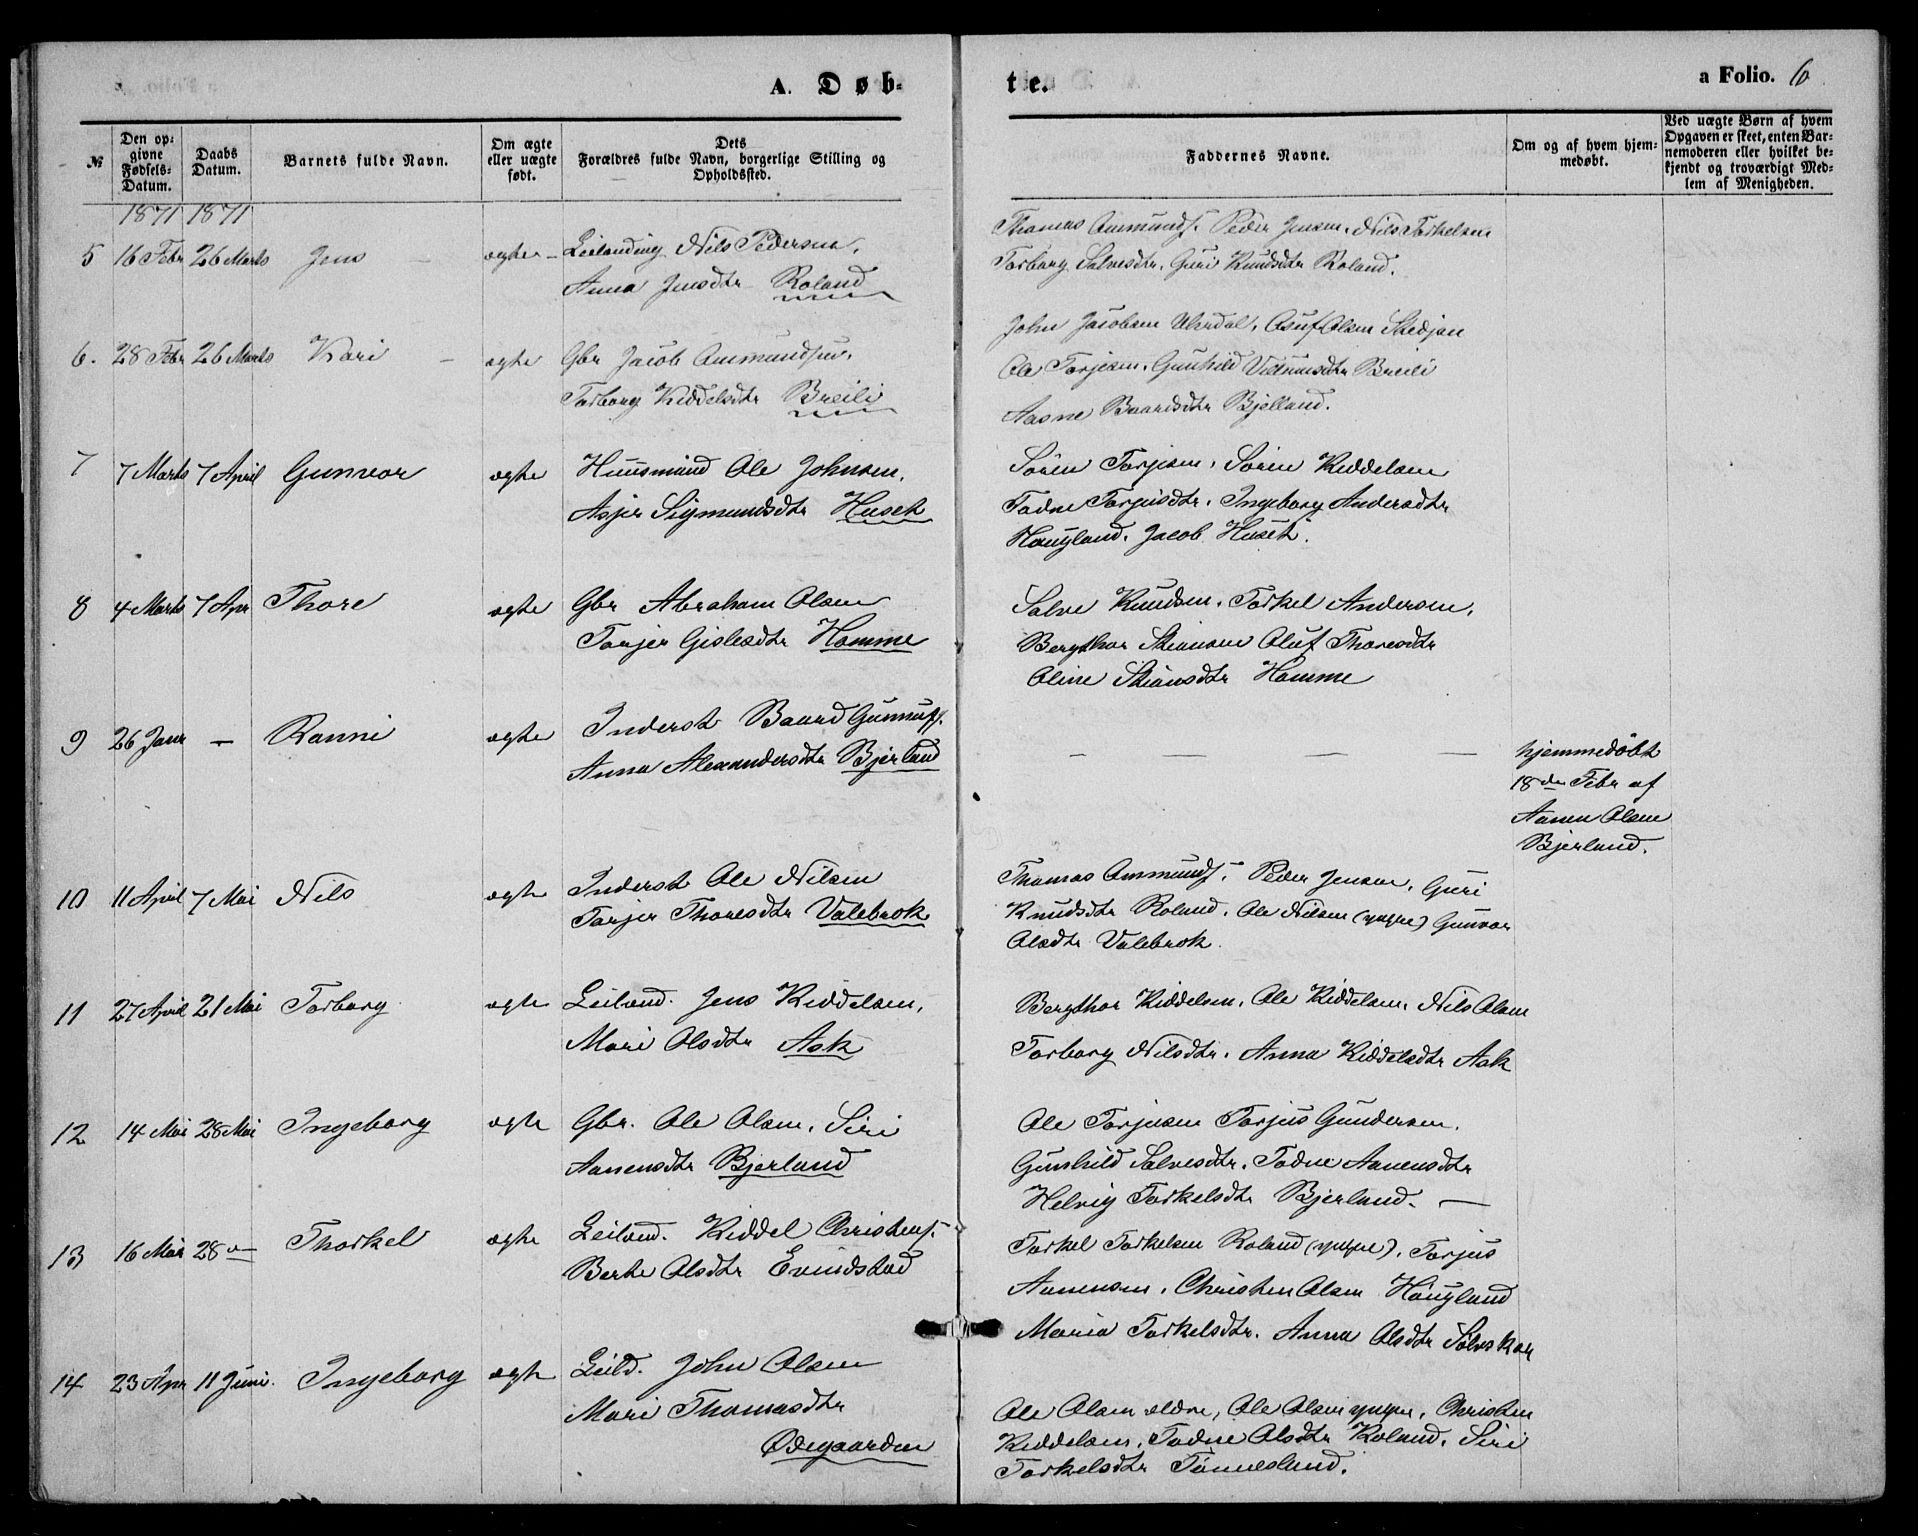 A. Døb-
te.
a Folio. 6
№
Den opgivne Fødsels-Datum.
Daabs Datum.
Barnets fulde Navn.
Om ægte eller uægte født.
Dets Forældres fulde Navn, borgerlige Stilling og Opholdssted.
Faddernes Navne.
Om og af hvem hjemmedøbt.
Ved uægte Børn af hvem Opgaven er skeet, enten Barnemoderen eller hvilket bekjendt og troværdigt Medlem af Menigheden.
1871 1871
5 16 Febr 26 Marts Jens – ægte – Leilænding Nils Pedersen,
Anna Jensdtr Roland
Thomas Ommunds. Peder Jensen. Nils Torkelsen
Torborg Salvesdtr. Guri Knudsdtr Roland.
6. 28 Febr 26 Marts Kari – ægte Gbr Jacob Ommundsen.
Torborg Kiddelsdtr Breili
John Jacobsen Uhrdal. Asuf Olsen
Ole Torjesen. Gunhild Breili
Aasne Baardsdtr Bjelland.
7 7 Marts 7 April Gunvor ægte Huusmand Ole Johnsen,
Asjer Sigmundsdtr Huset
Sören Torjesen. Sören Kiddelsen
Todne Torjusdtr. Ingeborg Andersdtr
Haugland. Jacob Huset.
8 4 Marts 7 Apr Thore ægte Gbr Abraham Olsen
Torjer Gislesdtr Homme
Salve Knudsen. Torkel Andersen,
Bergthor Stiansen Oluf Thoresdtr
Oline Stiansdtr Homme
9 26 Janr – Ranni ægte Inderst Baard Gunnufs.
Anna Alexandersdtr Bjerland
– – – –
hjemmedöbt
18de Febr af
Aanen Olsen
Bjerland.
10 11 April 7 Mai Nils ægte Inderst Ole Nilsen
Torjer Thoresdtr Valebrok
Thomas Ommunds. Peder Jensen, Guri
Knudsdtr Roland. Ole Nilsen (yngre) Gunvor
Olsdtr Valebrok.
11 27 April 21 Mai Torborg ægte Leilænd. Jens Kiddelsen,
Mari Olsdtr Ask
Bergthor Kiddelsen. Ole Kiddelsen. Nils Olsen
Torborg Nilsdtr. Anna Kiddelsdtr Ask
12 14 Mai 28 Mai Ingeborg ægte Gbr. Ole Olsen. Siri
Aanensdtr Bjerland
Ole Torjusen Torjus Gundersen.
Gunhild Salvesdtr. Todne Aanensdtr
Helvig Torkelsdtr Bjerland. –
13 16 Mai 28 – Thorkel ægte Leilænd. Kiddel Christens.
Berte Olsdtr Evindstad
Torkel Torkelsen Roland (yngre). Torjus
Aanensen. Christen Olsen Haugland
Maria Torkelsdtr. Anna Olsdtr
14 23 Apr 11 Juni. Ingeborg ægte Leild. John Olsen
Mari Thomasdtr
Ødegaarden
Ole Olsen ældre, Ole Olsen yngre, Christen
Kiddelsen, Todne Olsdtr Roland. Siri
Torkelsdtr Tönnesland.